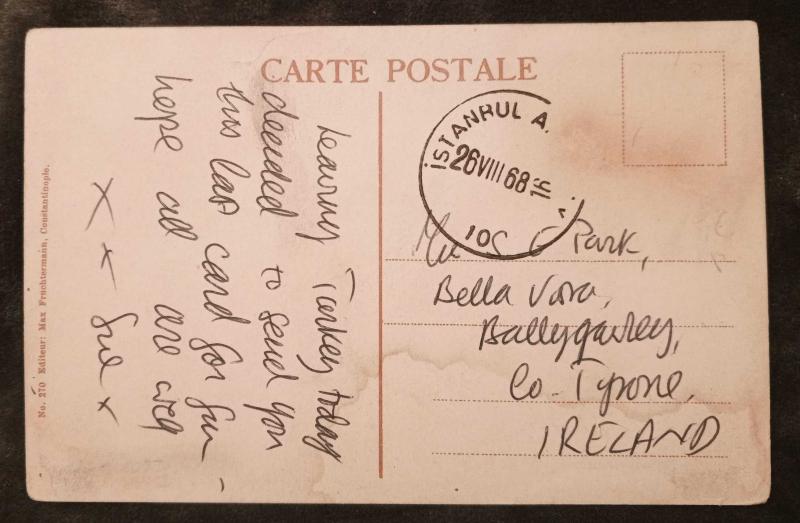 CARTE POSTALE
Leaving Turkey today
decided to send you
this last card for fun -
hope all are well
x x Sue x
İSTANBUL A.
26 VIII 68 16
No. 270 Editeur: Max Fruchtermann, Constantinople.
Park,
Bella Vora,
Co. Tyrone,
IRELAND